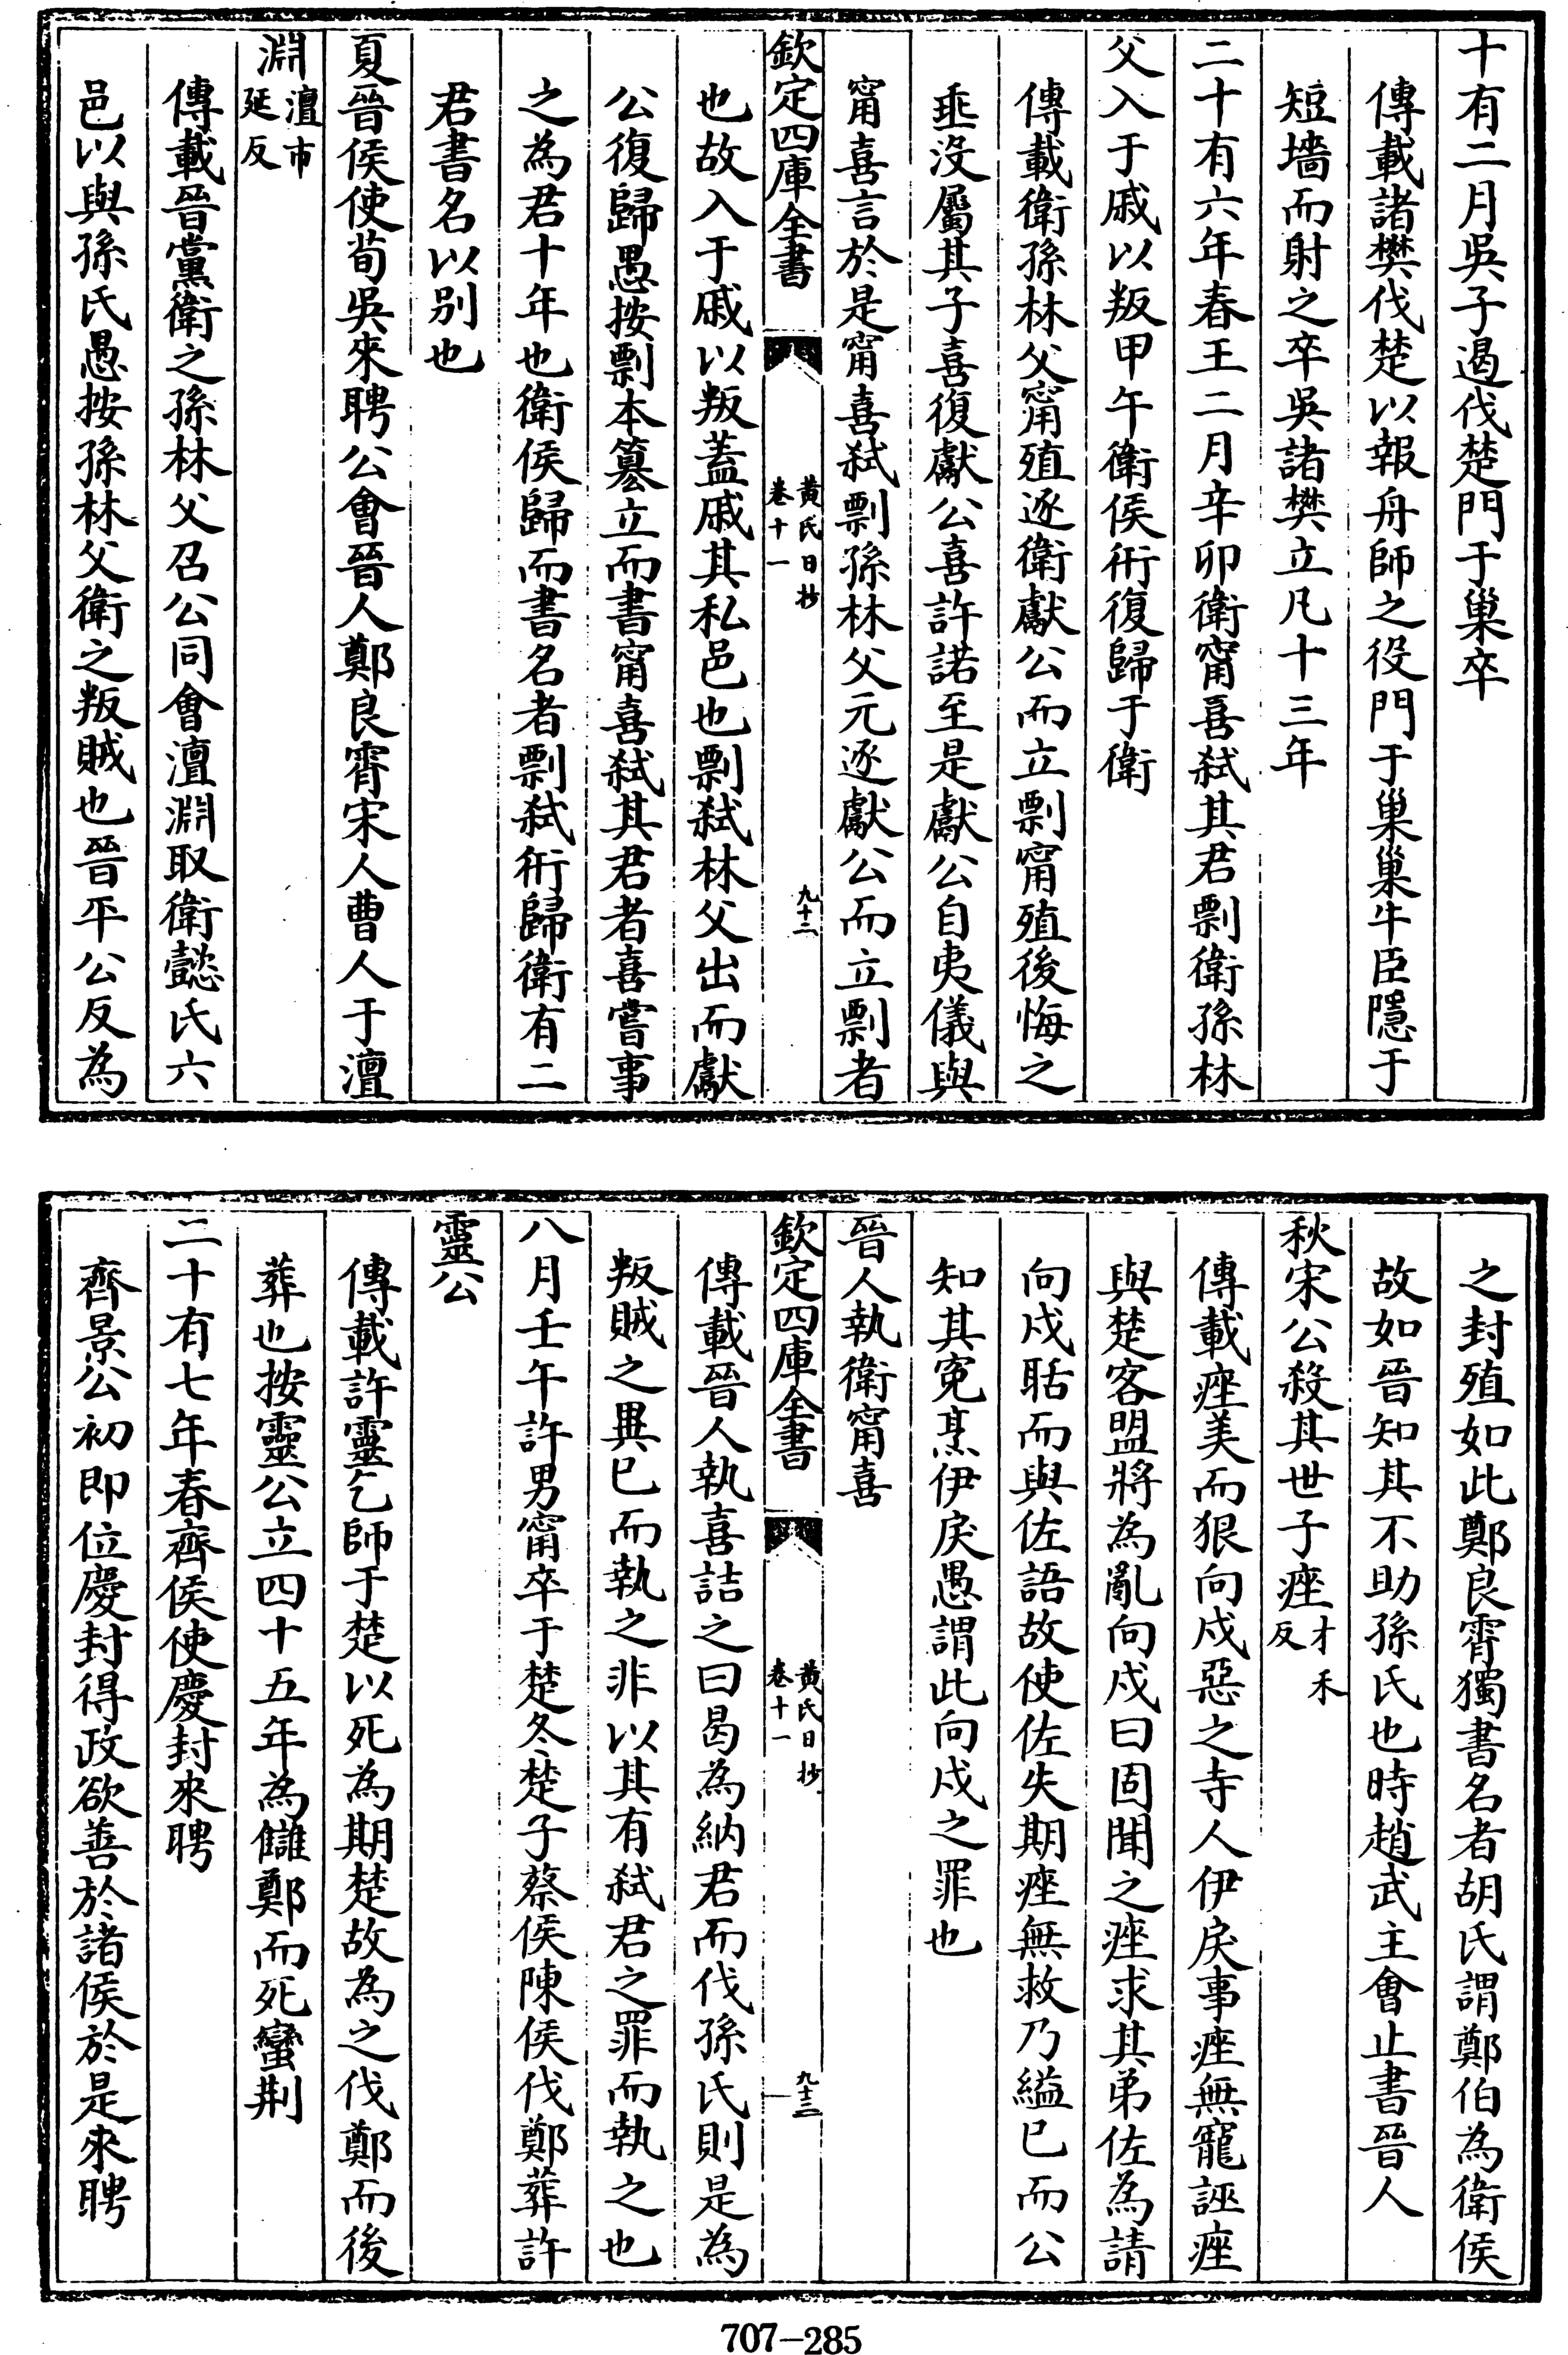 十有二月吳子遏伐楚門于巢卒
傳載諸樊伐楚以報舟師之役門于巢巢牛臣隱于
短墻而射之卒吳諸樊立凡十三年
二十有六年春王二月辛卯衛甯喜弑其君剽衛孫林
父入于戚以叛甲午衛侯衎復歸于衛
傳載衛孫林父甯殖逐衛獻公而立剽甯殖後悔之
垂沒屬其子喜復獻公喜許諾至是獻公自夷儀與
甯喜言於是甯喜弑剽孫林父元逐獻公而立剽者
欽定四庫全書
黃氏日抄
卷十一
九十二
也故入于戚以叛蓋戚其私邑也剽弑林父出而獻
公復歸愚按剽本簒立而書甯喜弑其君者喜嘗事
之為君十年也衛侯歸而書名者剽弑衎歸衛有二
君書名以别也
夏晉侯使荀吳來聘公會晉人鄭良霄宋人曹人于澶
淵澶市
延反
傳載晉黨衛之孫林父召公同會澶淵取衛懿氏六
邑以與孫氏愚按孫林父衛之叛賊也晉平公反為
之封殖如此鄭良霄獨書名者胡氏謂鄭伯為衛侯
故如晉知其不助孫氏也時趙武主會止書晉人
秋宋公殺其世子痤才禾
反
傳載痤美而狠向戍惡之寺人伊戾事痤無寵誣痤
與楚客盟將為亂向戍曰固聞之痤求其弟佐為請
向戍聒而與佐語故使佐失期痤無救乃縊已而公
知其寃烹伊戾愚謂此向戍之罪也
晉人執衛甯喜
欽定四庫全書
黃氏日抄
卷十一
九十三
傳載晉人執喜詰之曰曷為納君而伐孫氏則是為
叛賊之異已而執之非以其有弑君之罪而執之也
八月壬午許男甯卒于楚冬楚子蔡侯陳侯伐鄭葬許
靈公
傳載許靈乞師于楚以死為期楚故為之伐鄭而後
葬也按靈公立四十五年為讎鄭而死蠻荆
二十有七年春齊侯使慶封來聘
齊景公初即位慶封得政欲善於諸侯於是來聘
707-285